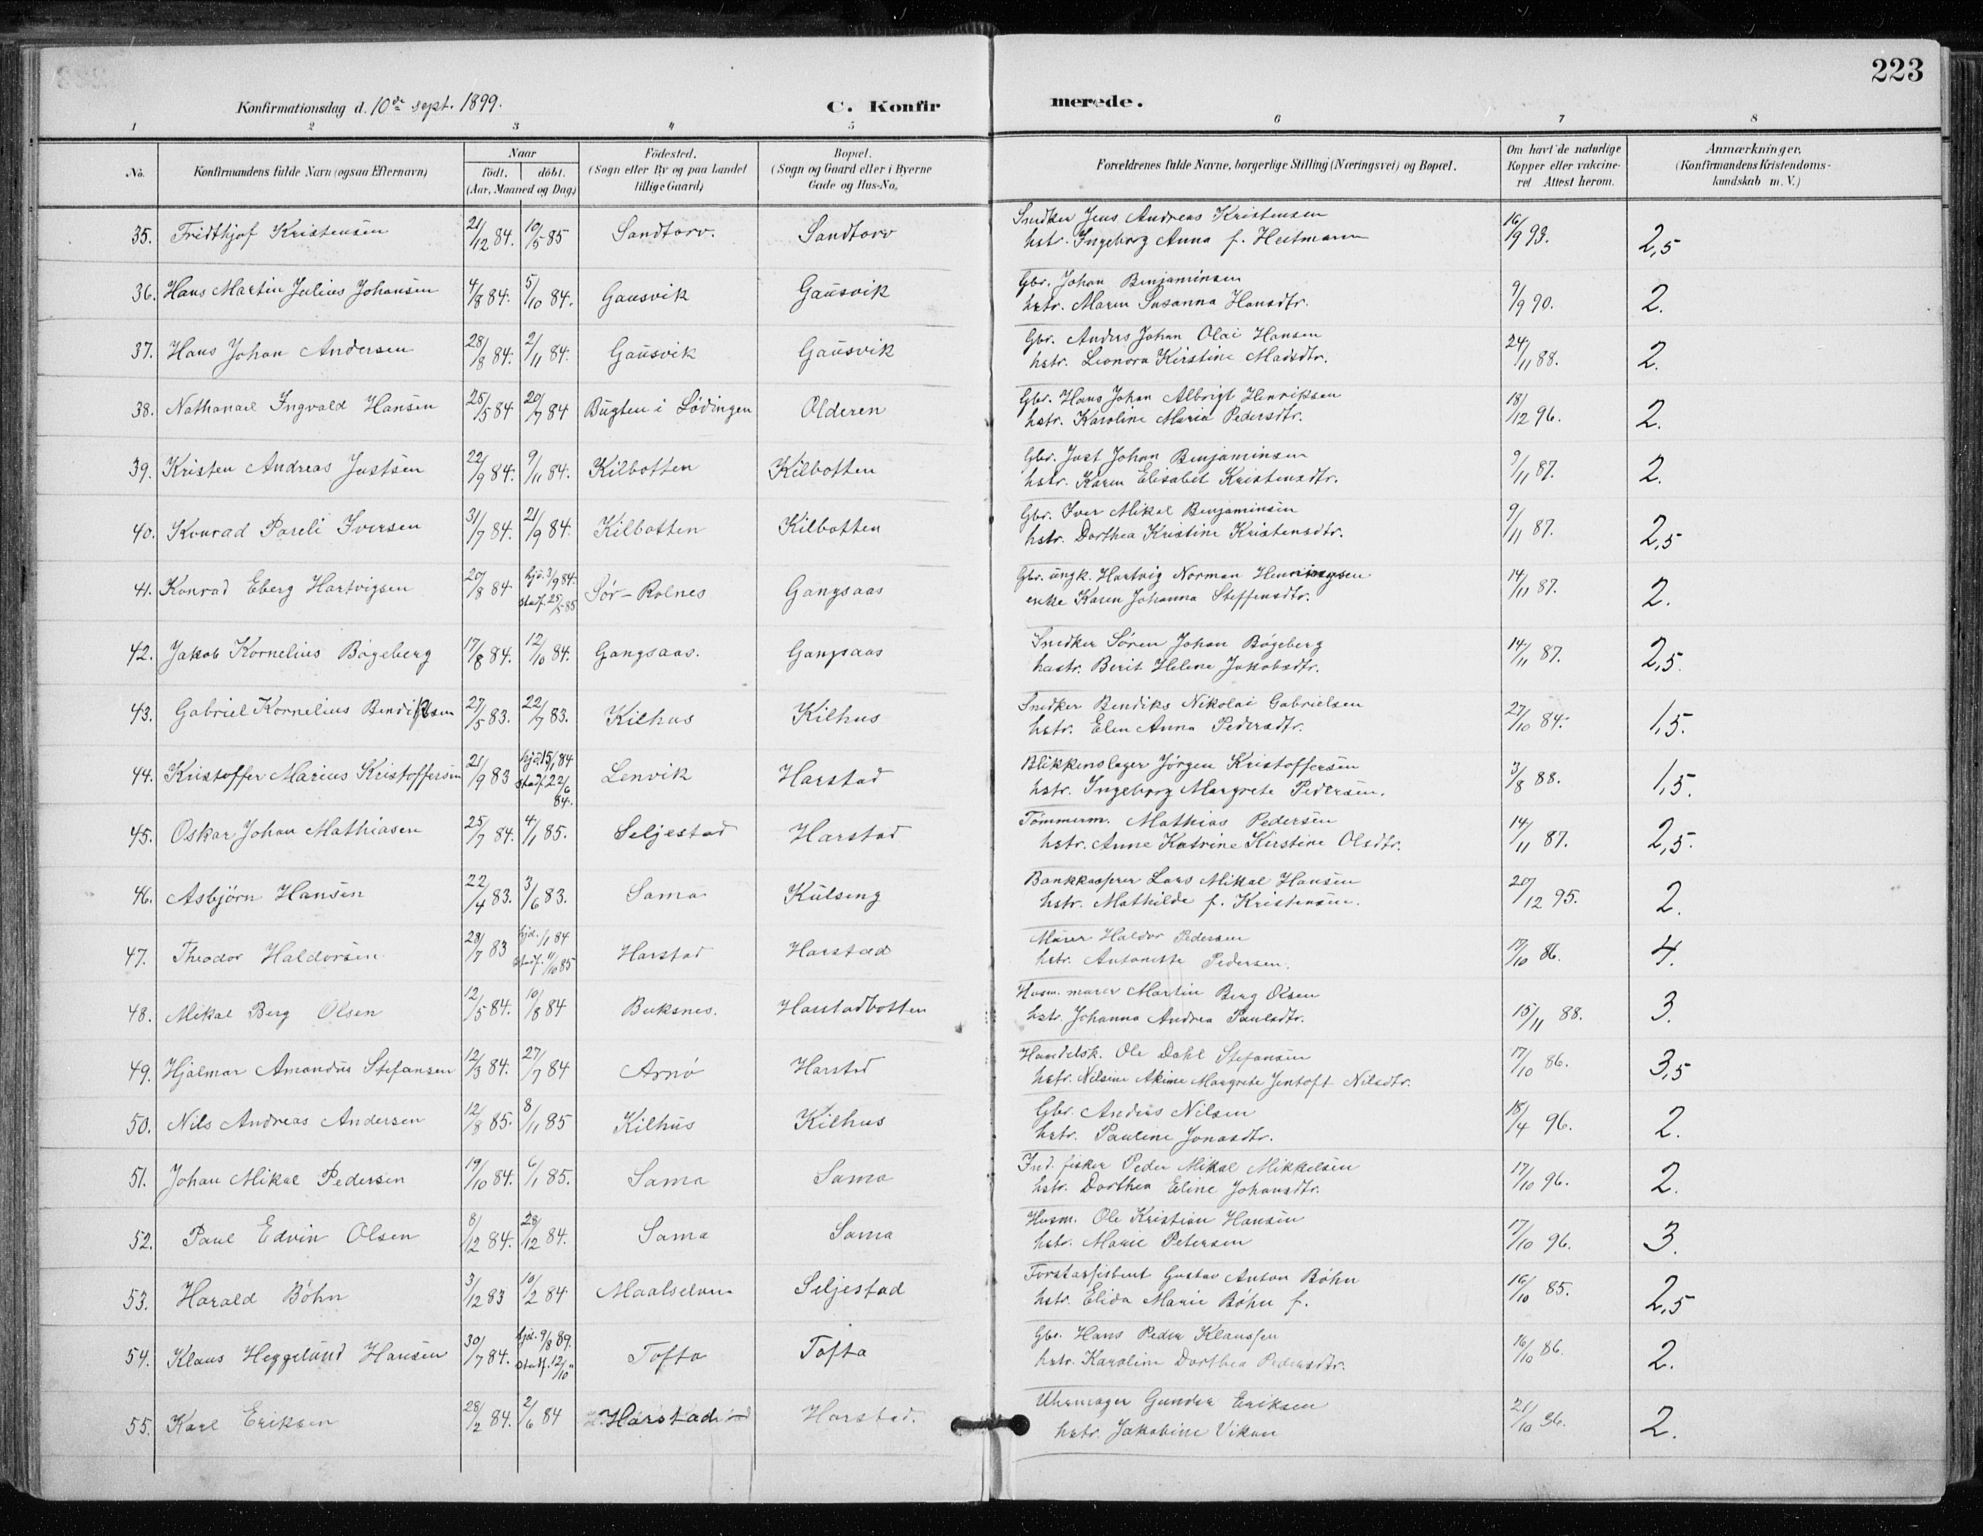 223
Konfirmationsdag d. 10de sept. 1899. C. Konfirmerede.
1 2 3 4 5 6 7 8
No. Konfirmandens fulde Navn (ogsaa Efternavn) Naar født. døbt. (Aar, Maaned og Dag) Fødested. (Sogn eller By og paa Landet tillige Gaard) Bopæl. (Sogn og Gaard eller i Byerne Gade og Hus-No. Forældrenes fulde Navne, borgerlige Stilling (Næringsvei) og Bopæl. Om havt de naturlige Kopper eller vakcineret Attest herom. Anmærkninger, (Konfirmandens Kristendomskundskab m. V.)
35. Fridthjof Kristensen 21/12 84. 10/5 85 Sandtorv. Sandtorv Snedker Jens Andreas Kristensen 16/9 93. 2,5
hstr. Ingeborg Anna f. Hestmann
36. Hans Martin Julius Johansen 4/8 84. 5/10 84. Gausvik Gausvik Gbr. Johan Benjaminsen 9/9 90. 2.
hstr. Maren Susanna Hansdtr.
37. Hans Johan Andersen 28/8 84. 2/11 84. Gausvik Gausvik Gbr. Anders Johan Olai Hansen 24/11 88. 2.
hstr. Leonora Kirstine Madsdtr.
38. Nathanael Ingvald Hansen 25/5 84 20/7 84 Bugten i Lødingen Olderen Gbr. Hans Johan Albrigt Henriksen 18/12 96. 2.
hstr. Karoline Maria Pedersdtr.
39. Kristen Andreas Justsen 22/9 84. 9/11 84. Kilbotten Kilbotten Gbr. Just Johan Benjaminsen 9/11 87. 2.
hstr. Karen Elisabet Kristensdtr.
40. Konrad Pareli Iversen 31/7 84. 21/9 84. Kilbotten Kilbotten Gbr. Iver Mikal Benjaminsen 9/11 87. 2,5
hstr. Dorthea Kristine Kristensdtr.
41. Konrad Eberg Hartvigsen 20/8 84 hjd. 3/9 84. stadf. 25/5 85 Sør-Rolnes Gangsaas Gbr. ungk. Hartvig Norman Henningsen 14/11 87. 2.
enke Karen Johanna Steffensdtr.
42. Jakob Kornelius Bøgeberg 17/8 84. 12/10 84. Gangsaas. Gangsaas Snedker Søren Johan Bøgeberg 14/11 87. 2,5.
hustr. Berit Helene Jakobsdtr.
43. Gabriel Kornelius Bendiksen 27/5 83. 22/7 83. Kilhus Kilhus Snedker Bendiks Nikolai Gabrielsen 27/10 84. 1,5.
hstr. Elen Anna Pedersdtr.
44. Kristoffer Marius Kristoffersen 21/9 83 hjd. 15/1 84 stadf. 22/6 84. Lenvik Harstad Blikkenslager Jørgen Kristoffersen 3/8 88. 1,5.
hstr. Ingeborg Margrete Pedersen.
45. Oskar Johan Mathiasen 25/7 84. 4/1 85. Seljestad Harstad Tømmerm. Mathias Pedersen 14/11 87. 2,5.
hstr. Anne Katrine Kirstine Olsdtr.
46. Asbjørn Hansen 22/4 83. 3/6 83. Sama Kulseng Bankkasserer Lars Mikal Hansen 20/12 95. 2.
hstr. Mathilde f. Kristensen.
47. Theodor Haldorsen 28/7 83 hjd. 1/1 84 stadf. 11/10 85 Harstad Harstad Murer Haldor Pedersen 17/10 86. 4.
hstr. Antonette Pedersen.
48. Mikal Berg Olsen 12/5 84. 10/8 84 Buksnes. Harstadbotten Husm. murer Martin Berg Olsen 15/11 88. 3.
hstr. Johanna Andrea Paulsdtr.
49. Hjalmar Amandus Stefansen 12/3 84. 27/7 84 Arnø Harstad Handelsk. Ole Dahl Stefansen 17/10 86. 3,5
hstr. Nilsine Akine Margrete Jentoft Nilsdtr.
50. Nils Andreas Andersen 12/8 85. 8/11 85 Kilhus Kilhus Gbr. Anders Nilsen 18/4 96. 2.
hstr. Pauline Jonasdtr.
51. Johan Mikal Pedersen 19/10 84. 6/1 85. Sama Sama Ind. fisker Peder Mikal Mikkelsen 17/10 96. 2.
hstr. Dorthea Eline Johansdtr.
52. Paul Edvin Olsen 8/12 84. 28/12 84. Sama Sama Husm. Ole Kristian Hansen 17/10 96. 3.
hstr. Marie Petersen
53. Harald Bøhn 3/12 83 10/2 84 Maalselven Seljestad Forstassistent Gustav Anton Bøhn 16/10 85. 2,5
hstr. Elida Marie Bøhn f.
54. Klaus Heggelund Hansen 30/7 84. hjd. 9/8 89. stadf. 12/10 " Tofta Tofta Gbr. Hans Peder Klaussen 16/10 86. 2.
hstr. Karoline Dorthea Pedersdtr.
55. Karl Eriksen 28/2 84. 2/6 84 Harstad Harstad. Uhrmager Gunder Eriksen 21/10 86. 2.
hstr. Jakobine Vikan